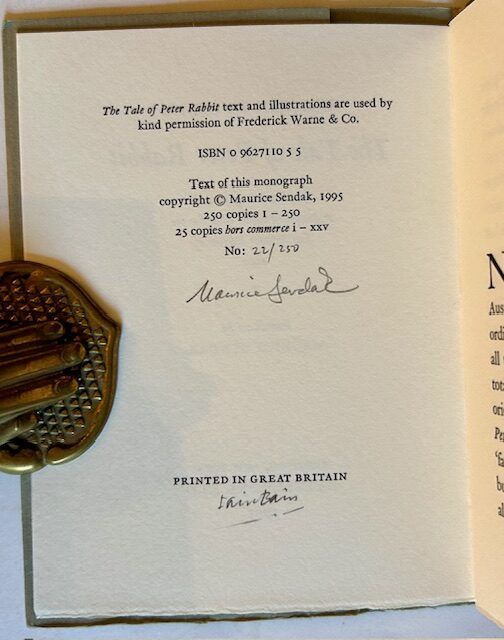 The Tale of Peter Rabbit text and illustrations are used by
kind permission of Frederick Warne & Co.
ISBN 0 9627110 5 5
Text of this monograph
copyright © Maurice Sendak, 1995
250 copies 1 – 250
25 copies hors commerce i – xxv
No: 22/250
Maurice Sendak
PRINTED IN GREAT BRITAIN
Iain Bain
N
Aus
ordi
all
tots
ori
Pe
'fa
bu
al